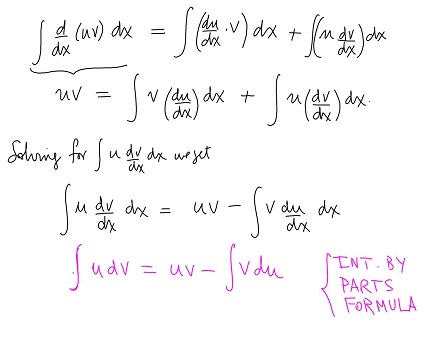 ∫ d/dx (uv) dx = ∫(du/dx · v) dx + ∫(u dv/dx) dx
uv = ∫ v (du/dx) dx + ∫ u (dv/dx) dx.
Solving for ∫ u dv/dx dx we get
∫ u dv/dx dx = uv - ∫ v du/dx dx
∫ u dv = uv - ∫ v du
INT. BY
PARTS
FORMULA